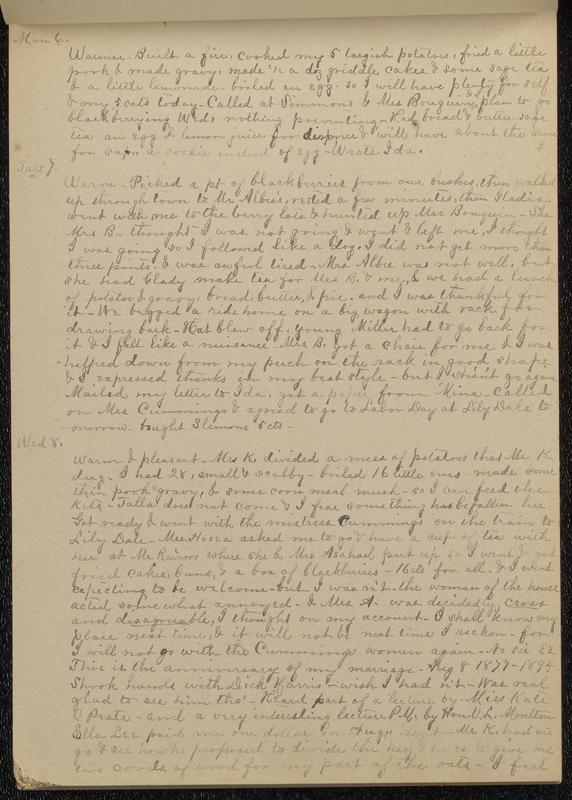 Mon 6.
Warmer - Built a fire, cooked my 5 largish potatoes, fried a little
pork & made gravy, made ½ a doz griddle cakes & some sage tea
& a little lemonade - boiled an egg. so I will have plenty for self
& my 5 cats today - Called at Simmons & Mrs Bouguein, plan to go
blackberrying Wed. nothing preventing - Had bread & butter sage
tea an egg & lemon juice for & will have about the same
for sup.. a cookie instead of egg - Wrote Ida.
Tues 7.
Warm - Picked a pt of blackberries from our bushes, then walked
up through town to Mr Albies, rested a few minutes, then Gladis
went with me to the berry lots & hunted up Mrs Bouguein - She
Mrs B - thought I was not going & went & left me, I thought
I was going so I followed like a dog. I did not get more than
three pints. & was awful tired - Mrs Albie was not well, but
she had Glady make tea for Mrs B. & me, & we had a lunch
of potatoe & gravy, bread butter, & pie. and I was thankful for
it - We begged a ride home on a big wagon with rack for
drawing bark - Hat blew off, young Miller had to go back for
it & I fell like a nuisance - Mrs B. got a chair for me & I was
helped down from my perch on the rack in good shape
& I expressed thanks in my best style - but I shan't go again
Mailed my letter to Ida, got a paper from Mina - Called
on Mrs Cummings & agreed to go to Labor Day at Lily Dale to
-morrow - bought 3 lemons 5 cts -
Wed 8.
Warm & pleasant - Mrs K. divided a mess of potatoes that Mr K
dug - I had 28, small & scabby - boiled 16 little ones - made some
thin pork gravy, & some corn meal mush - so I can feed the
kits - Talla does not come & I fear something has befallen her
Got ready & went with the mistress Cummings on the train to
Lily Dale - Mrs asked me to go & have a cup of tea with
her at Mr Rainors where she & Mrs Asahael put up so I went & got
fried cakes, buns, & a box of blackburies - 16 cts for all. & I went
expecting to be welcome - but I wasn't - the woman of the house
acted somewhat annoyed - & Mrs A. was decidedly cross
and disagreeable, I thought on my account - I shall know my
place next time, & it will not be next time I reckon - for
I will not go with the Cummings women again - No sir EE
This is the anniversary of my marriage - Aug 8 1877 - 1894
Shook hands with Dick - wish I hadn't - Was real
glad to see him tho' - Heard part of a lecture by Miss Kate
O Prate - and a very interesting lecture P.M. by Hon. V.L. Moulton
Ella Lee paid me one dollar on Aug,, rent - Mr K. had me
go & see how he proposed to divide the hay & he is to give me
two cords of wood for my part of the oats - I feel